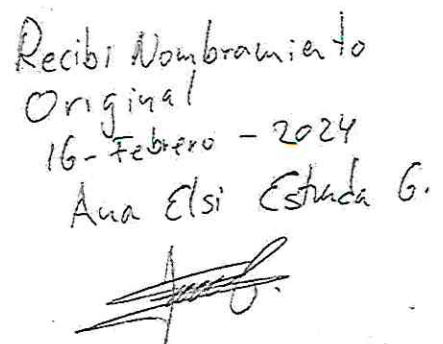 Recibi Nombramiento
Original
16-Febrero-2024
Ana Elsi Estrada G.